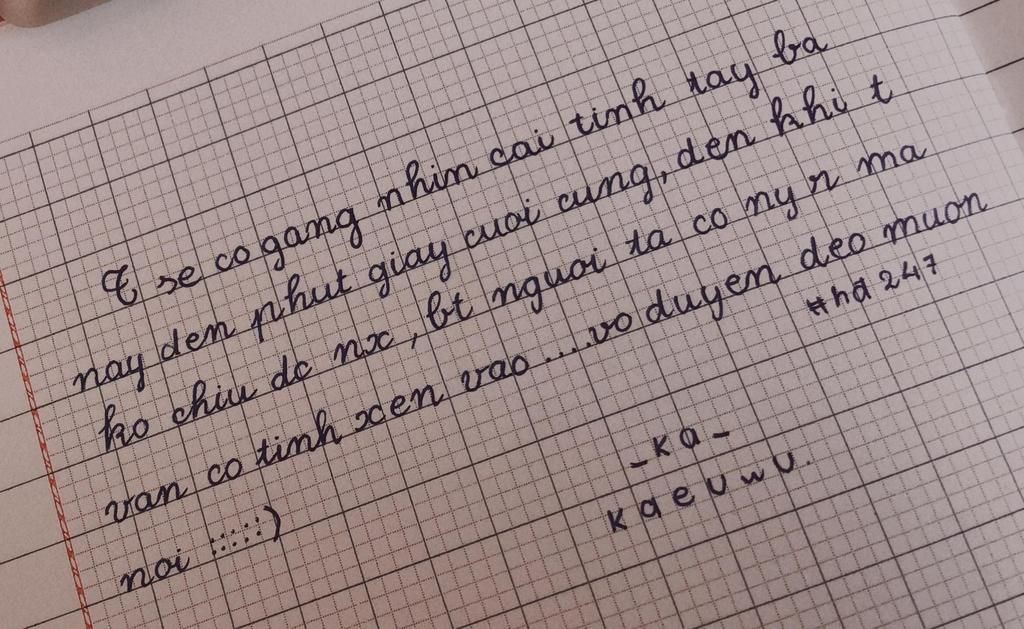 T se co gang nhin cai tinh tay ba
nay den phut giay cuoi cung, den khi t
ko chiu dc nx, bt nguoi ta co ny r ma
van co tinh xen vao ....vo duyen deo muon
noi :::::)
#hd 247
_Ka_
KaeUwU.